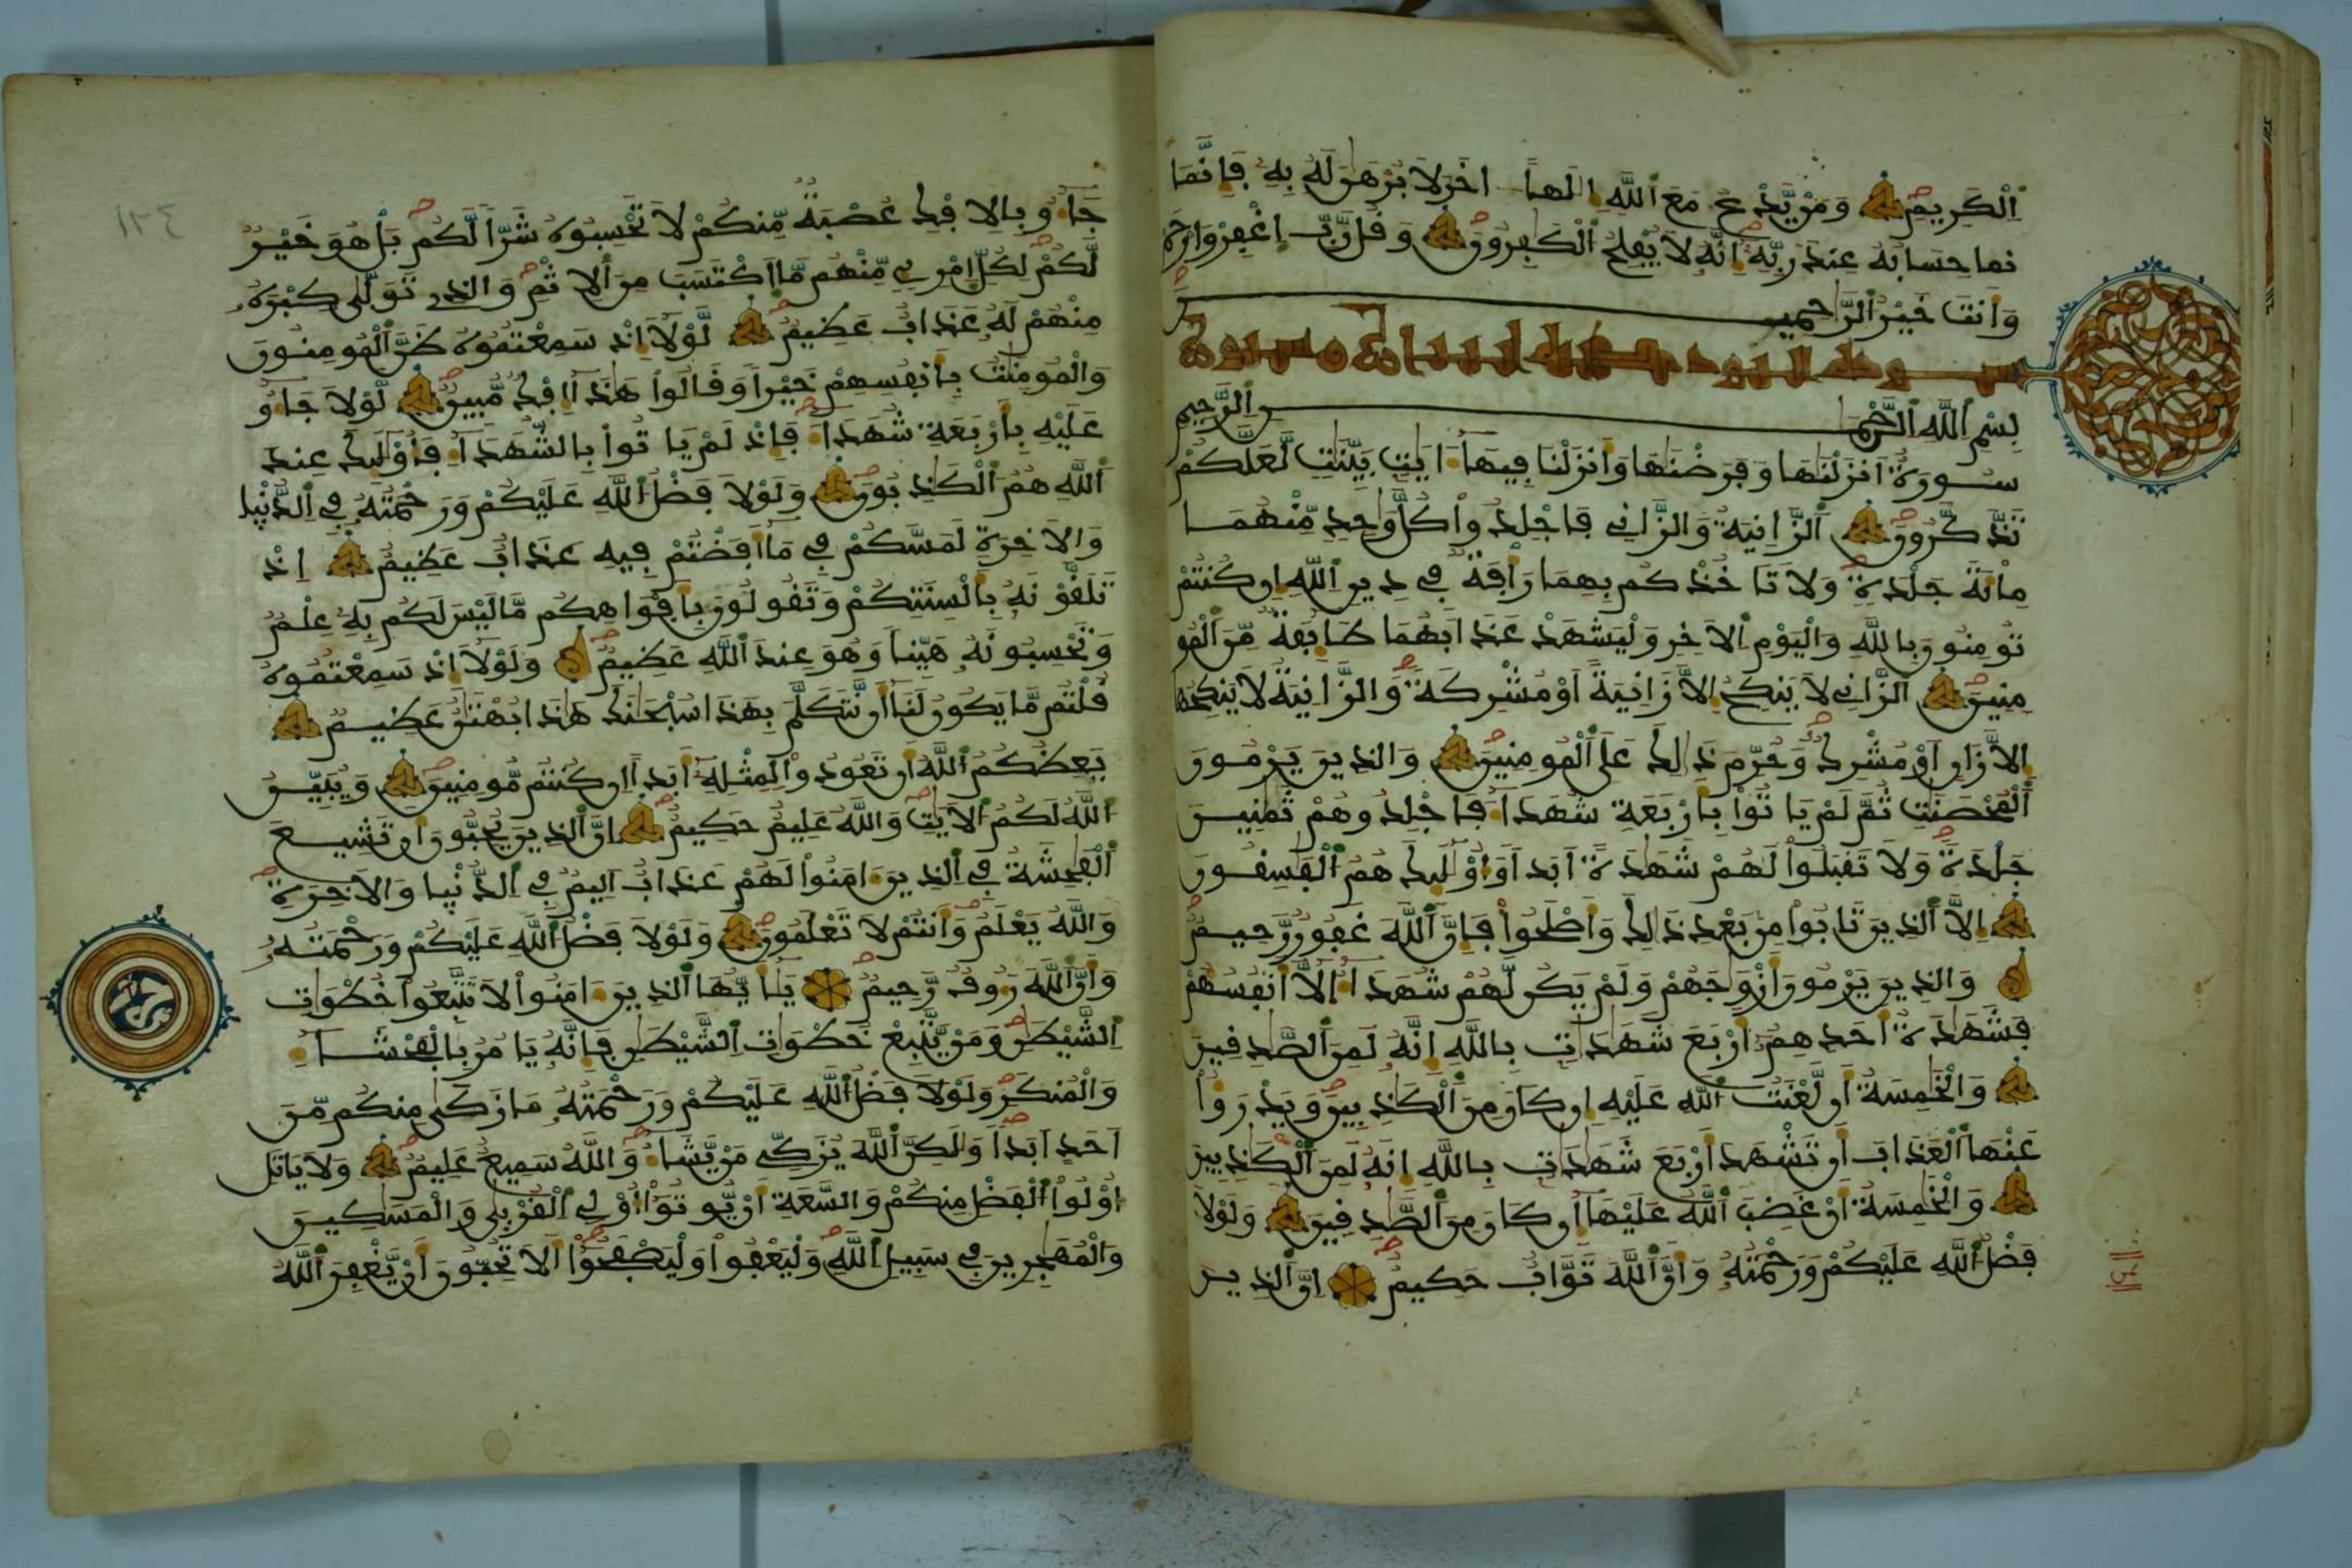 اِ۬لْكَرِيمِ وَمَنْ يَّدْعُ مَعَ اَ۬للَّهِ إِلَٰهاً اٰخَرَ لَا بُرْهَٰنَ لَهُۥ بِهِۦ فَإِنَّمَا
حِسَابُهُۥ عِندَ رَبِّهِۦ إِنَّهُۥ لَا يُفْلِحُ اُ۬لْكَٰفِرُونَ وَقُل رَّبِّ اِ۪غْفِرْ وَارْحَمْ
وَأَنتَ خَيْرُ اُ۬لرَّٰحِمِينَ
بِسْمِ اِ۬للَّهِ اِ۬لرَّحْمَٰنِ اِ۬لرَّحِيمِ
سُورَةٌ اَنزَلْنَٰهَا وَفَرَضْنَٰهَا وَأَنزَلْنَا فِيهَآ ءَايَٰتِۢ بَيِّنَٰتٖ لَّعَلَّكُمْ
تَذَّكَّرُونَ اَ۬لزَّانِيَةُ وَالزَّانِے فَاجْلِدُواْ كُلَّ وَٰحِدٖ مِّنْهُمَا
مِاْئَةَ جَلْدَةٖ وَلَا تَاخُذْكُم بِهِمَا رَأْفَةٞ فِے دِينِ اِ۬للَّهِ إِن كُنتُمْ
تُومِنُونَ بِاللَّهِ وَالْيَوْمِ اِ۬لَاخِرِ وَلْيَشْهَدْ عَذَابَهُمَا طَآئِفَةٞ مِّنَ اَ۬لْمُو
مِنِينَ اَ۬لزَّانِے لَا يَنكِحُ إِلَّا زَانِيَةً اَوْ مُشْرِكَةٗ وَالزَّانِيَةُ لَا يَنكِحُهَآ
إِلَّا زَانٍ اَوْ مُشْرِكٞ وَحُرِّمَ ذَٰلِكَ عَلَى اَ۬لْمُومِنِينَ وَالذِينَ يَرْمُونَ
اَ۬لْمُحْصَنَٰتِ ثُمَّ لَمْ يَاتُواْ بِأَرْبَعَةِ شُهَدَآءَ فَاجْلِدُوهُمْ ثَمَٰنِينَ
جَلْدَةٗ وَلَا تَقْبَلُواْ لَهُمْ شَهَٰدَةً اَبَداٗ وَأُوْلَٰٓئِكَ هُمُ اُ۬لْفَٰسِقُونَ
إِلَّا اَ۬لذِينَ تَابُواْ مِنۢ بَعْدِ ذَٰلِكَ وَأَصْلَحُواْ فَإِنَّ اَ۬للَّهَ غَفُورٞ رَّحِيمٞ
وَالذِينَ يَرْمُونَ أَزْوَٰجَهُمْ وَلَمْ يَكُن لَّهُمْ شُهَدَآءُ اِلَّآ أَنفُسُهُمْ
فَشَهَٰدَةُ أَحَدِهِمُۥٓ أَرْبَعَ شَهَٰدَٰتِۢ بِاللَّهِ إِنَّهُۥ لَمِنَ اَ۬لصَّٰدِقِينَ
وَالْخَٰمِسَةُ أَن لَّعْنَتُ اُ۬للَّهِ عَلَيْهِ إِن كَانَ مِنَ اَ۬لْكَٰذِبِينَ وَيَدْرَؤُاْ
عَنْهَا اَ۬لْعَذَابَ أَن تَشْهَدَ أَرْبَعَ شَهَٰدَٰتِۢ بِاللَّهِ إِنَّهُۥ لَمِنَ اَ۬لْكَٰذِبِينَ
وَالْخَٰمِسَةُ أَنْ غَضِبَ اَ۬للَّهُ عَلَيْهَآ إِن كَانَ مِنَ اَ۬لصَّٰدِقِينَ وَلَوْلَا
فَضْلُ اُ۬للَّهِ عَلَيْكُمْ وَرَحْمَتُهُۥ وَأَنَّ اَ۬للَّهَ تَوَّابٌ حَكِيمٌ اِنَّ اَ۬لذِينَ
١٢٤
جَآءُو بِالِافْكِ عُصْبَةٞ مِّنكُمْ لَا تَحْسِبُوهُ شَرّاٗ لَّكُم بَلْ هُوَ خَيْرٞ
لَّكُمْ لِكُلِّ اِ۪مْرِےٕٖ مِّنْهُم مَّا اَ۪كْتَسَبَ مِنَ اَ۬لِاثْمِ وَالذِے تَوَلَّىٰ كِبْرَهُۥ
مِنْهُمْ لَهُۥ عَذَابٌ عَظِيمٞ لَّوْلَآ إِذْ سَمِعْتُمُوهُ ظَنَّ اَ۬لْمُومِنُونَ
وَالْمُومِنَٰتُ بِأَنفُسِهِمْ خَيْراٗ وَقَالُواْ هَٰذَآ إِفْكٞ مُّبِينٞ لَّوْلَا جَآءُو
عَلَيْهِ بِأَرْبَعَةِ شُهَدَآءَ فَإِذْ لَمْ يَاتُواْ بِالشُّهَدَآءِ فَأُوْلَٰٓئِكَ عِندَ
اَ۬للَّهِ هُمُ اُ۬لْكَٰذِبُونَ وَلَوْلَا فَضْلُ اُ۬للَّهِ عَلَيْكُمْ وَرَحْمَتُهُۥ فِے اِ۬لدُّنْيَا
وَالَاخِرَةِ لَمَسَّكُمْ فِے مَآ أَفَضْتُمْ فِيهِ عَذَابٌ عَظِيمٌ اِذْ
تَلَقَّوْنَهُۥ بِأَلْسِنَتِكُمْ وَتَقُولُونَ بِأَفْوَاهِكُم مَّا لَيْسَ لَكُم بِهِۦ عِلْمٞ
وَتَحْسِبُونَهُۥ هَيِّناٗ وَهُوَ عِندَ اَ۬للَّهِ عَظِيمٞ وَلَوْلَآ إِذْ سَمِعْتُمُوهُ
قُلْتُم مَّا يَكُونُ لَنَآ أَن نَّتَكَلَّمَ بِهَٰذَا سُبْحَٰنَكَ هَٰذَا بُهْتَٰنٌ عَظِيمٞ
يَعِظُكُمُ اُ۬للَّهُ أَن تَعُودُواْ لِمِثْلِهِۦٓ أَبَداً اِن كُنتُم مُّومِنِينَ وَيُبَيِّنُ
اُ۬للَّهُ لَكُمُ اُ۬لَايَٰتِ وَاللَّهُ عَلِيمٌ حَكِيمٌ اِنَّ اَ۬لذِينَ يُحِبُّونَ أَن تَشِيعَ
اَ۬لْفَٰحِشَةُ فِے اِ۬لذِينَ ءَامَنُواْ لَهُمْ عَذَابٌ اَلِيمٞ فِے اِ۬لدُّنْيَا وَالَاخِرَةِ
وَاللَّهُ يَعْلَمُ وَأَنتُمْ لَا تَعْلَمُونَ وَلَوْلَا فَضْلُ اُ۬للَّهِ عَلَيْكُمْ وَرَحْمَتُهُۥ
وَأَنَّ اَ۬للَّهَ رَءُوفٞ رَّحِيمٞ يَٰٓأَيُّهَا اَ۬لذِينَ ءَامَنُواْ لَا تَتَّبِعُواْ خُطْوَٰتِ
اِ۬لشَّيْطَٰنِ وَمَنْ يَّتَّبِعْ خُطْوَٰتِ اِ۬لشَّيْطَٰنِ فَإِنَّهُۥ يَامُرُ بِالْفَحْشَآءِ
وَالْمُنكَرِ وَلَوْلَا فَضْلُ اُ۬للَّهِ عَلَيْكُمْ وَرَحْمَتُهُۥ مَا زَكَىٰ مِنكُم مِّنَ
اَحَدٍ اَبَداٗ وَلَٰكِنَّ اَ۬للَّهَ يُزَكِّے مَنْ يَّشَآءُ وَاللَّهُ سَمِيعٌ عَلِيمٞ وَلَا يَاتَلِ
أُوْلُواْ اُ۬لْفَضْلِ مِنكُمْ وَالسَّعَةِ أَنْ يُّوتُوٓاْ أُوْلِے اِ۬لْقُرْبَىٰ وَالْمَسَٰكِينَ
وَالْمُهَٰجِرِينَ فِے سَبِيلِ اِ۬للَّهِ وَلْيَعْفُواْ وَلْيَصْفَحُوٓاْ أَلَا تُحِبُّونَ أَنْ يَّغْفِرَ اَ۬للَّهُ